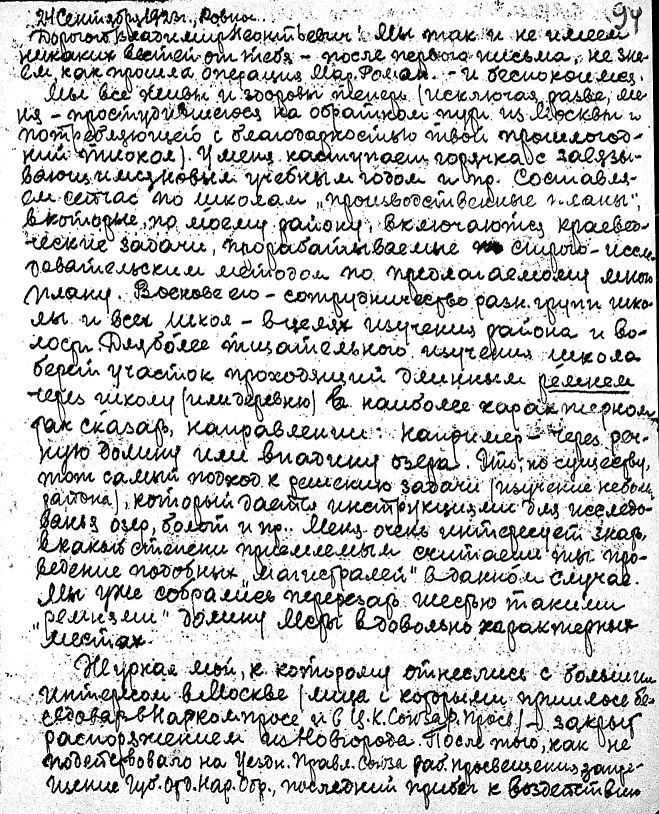 94
24 Сентября, 1923 г., Ровно.
Дорогой Владимир Леонтьевич! Мы так и не имеем
никаких вестей от тебя – после первого письма, не зна-
ем, как прошла операция Мар. Роман. – и беспокоимся.
Мы все живы и здоровы теперь (исключая разве, ме-
ня – простудившегося на обратном пути из Москвы и
потребляющего с благодарностью твой прошлогод-
ний). У меня наступает горячка с завязы-
вающимся новым учебным годом и пр. Составля-
ем сейчас по школам „производственные планы“,
в которые, по моему району, включаются краевед-
ческие задачи, прорабатываемые строго-иссле-
довательским методом по предлагаемому мною
плану. В основе его – сотрудничество разн. групп шко-
лы и всех школ – в целях изучения района и во-
лости. Для более тщательного изучения школа
берет участок проходящий длинным ремнем
через школу (или деревню) в наиболее характерном,
так сказать, направлении: например – через реч-
ную долину или впадину озера. Это, по существу,
тот самый подход к решению задачи (изучение небольш.
района), который дается инструкциями для исследо-
вания озер, болот и пр.. Меня очень интересует знать,
в какой степени приемлемым считаешь ты про-
ведение подобных „магистралей“ в данном случае.
Мы уже собрались перерезать шестью такими
„ремнями“ долину Мсты в довольно характерных
местах.
Журнал мой, к которому отнеслись с большим
интересом в Москве (лица с которыми пришлось бе-
седовать в Наркомпросе и в Ц.К. Союза р. Прос.) – закрыт
распоряжением из Новгорода. После того, как не
подействовало на Уездн. Правл. Союза раб. просвещения запре-
щение Губ. Отд. Нар. Обр., последний прибег к воздействию